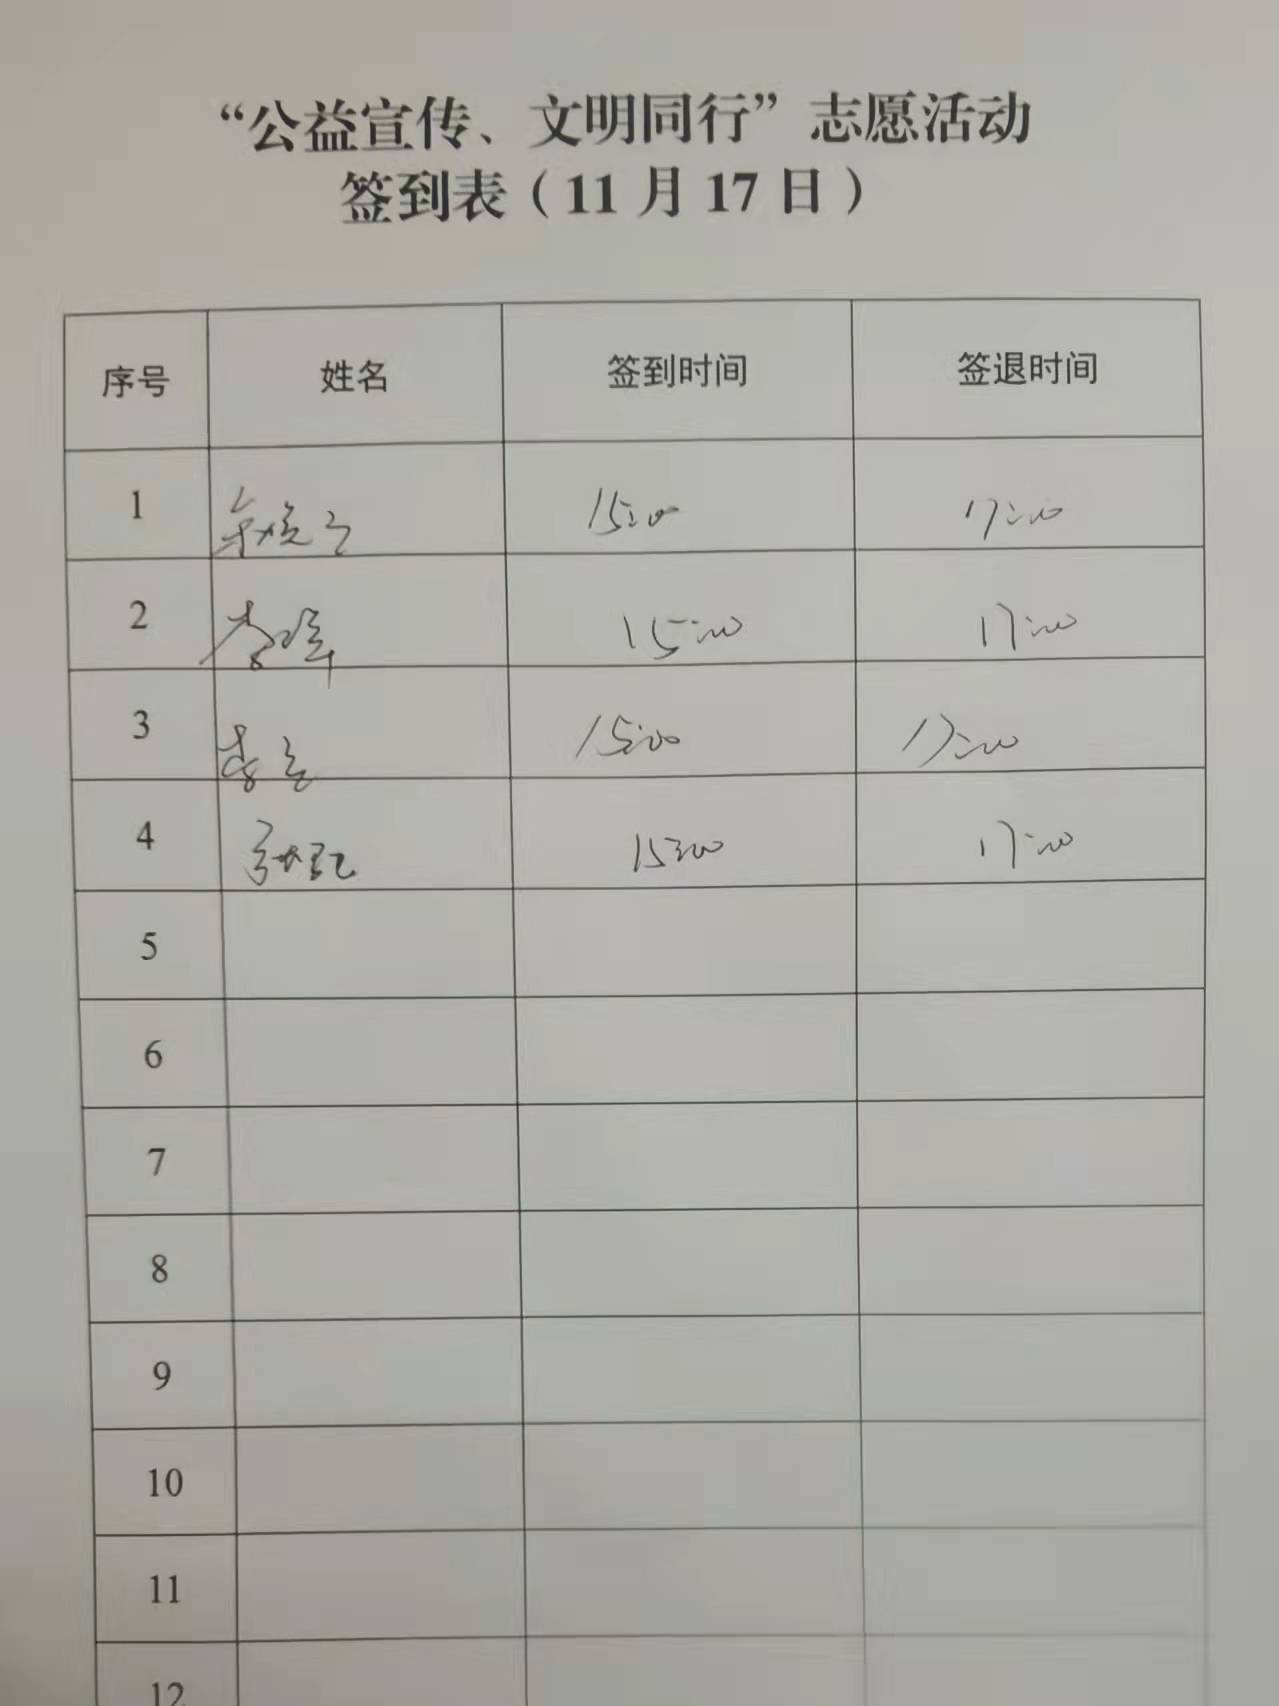 “公益宣传、文明同行”志愿活动
签到表（11月17日）
序号 姓名 签到时间 签退时间
1 15:00 17:00
2 15:00 17:00
3 15:00 17:00
4 15:00 17:00
5
6
7
8
9
10
11
12